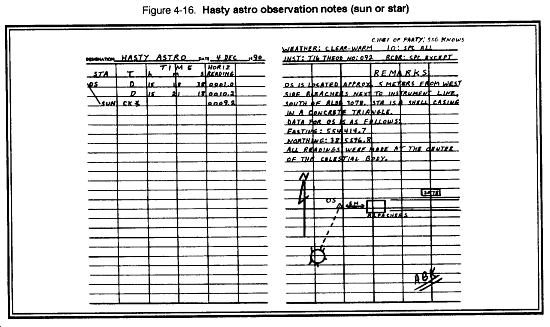 Figure 4-16. Hasty astro observation notes (sun or star)
DESIGNATION HASTY ASTRO DATE 4 DEC 19 90
TIME HORIZ
STA T h m s READING
OS D 15 18 38 0001.0
D 15 21 18 0010.2
SUN CK 0009.2
CHIEF OF PARTY: SSG KNOWS
WEATHER: CLEAR-WARM IO: SPC ALL
INST: T16 THEOD NO: 092 RCDR: SPC EXCEPT
REMARKS
OS IS LOCATED APPROX. 5 METERS FROM WEST
SIDE BLEACHERS NEXT TO INSTRUMENT LINE,
SOUTH OF BLDG 3078. STA IS A SHELL CASING
IN A CONCRETE TRIANGLE.
DATA FOR OS IS AS FOLLOWS:
EASTING: 554419.7
NORTHING: 3835596.8
ALL READINGS WERE MADE AT THE CENTER
OF THE CELESTIAL BODY.
N
3078
OS 5M
BLEACHERS
ABK